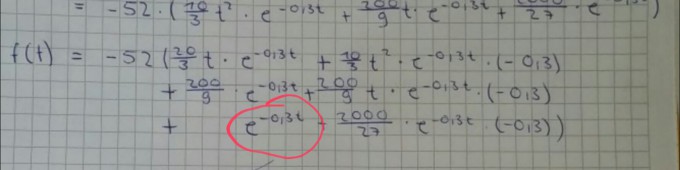 = -52·(10/3 t² · e^-0,3t + 200/9 t · e^-0,3t + 2000/27 · e )
f(t) = -52(20/3 t · e^-0,3t + 10/3 t² · e^-0,3t · (-0,3)
+ 200/9 · e^-0,3t + 200/9 t · e^-0,3t · (-0,3)
+ e^-0,3t + 2000/27 · e^-0,3t · (-0,3))